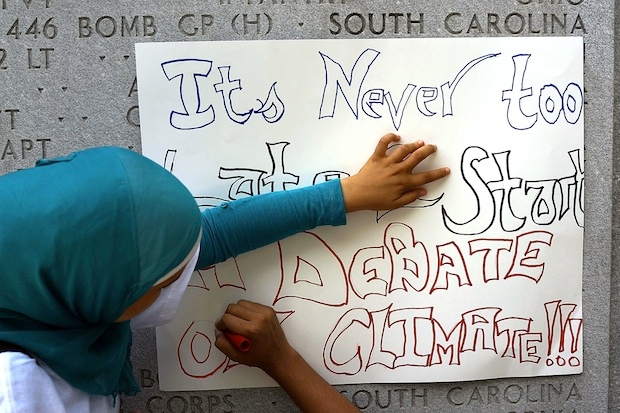 446 BOMB GP (H) · SOUTH CAROLINA
2 LT
It's Never too
Late 2 Start
A DEBATE
ON CLIMATE!!!
CORPS · SOUTH CAROLINA